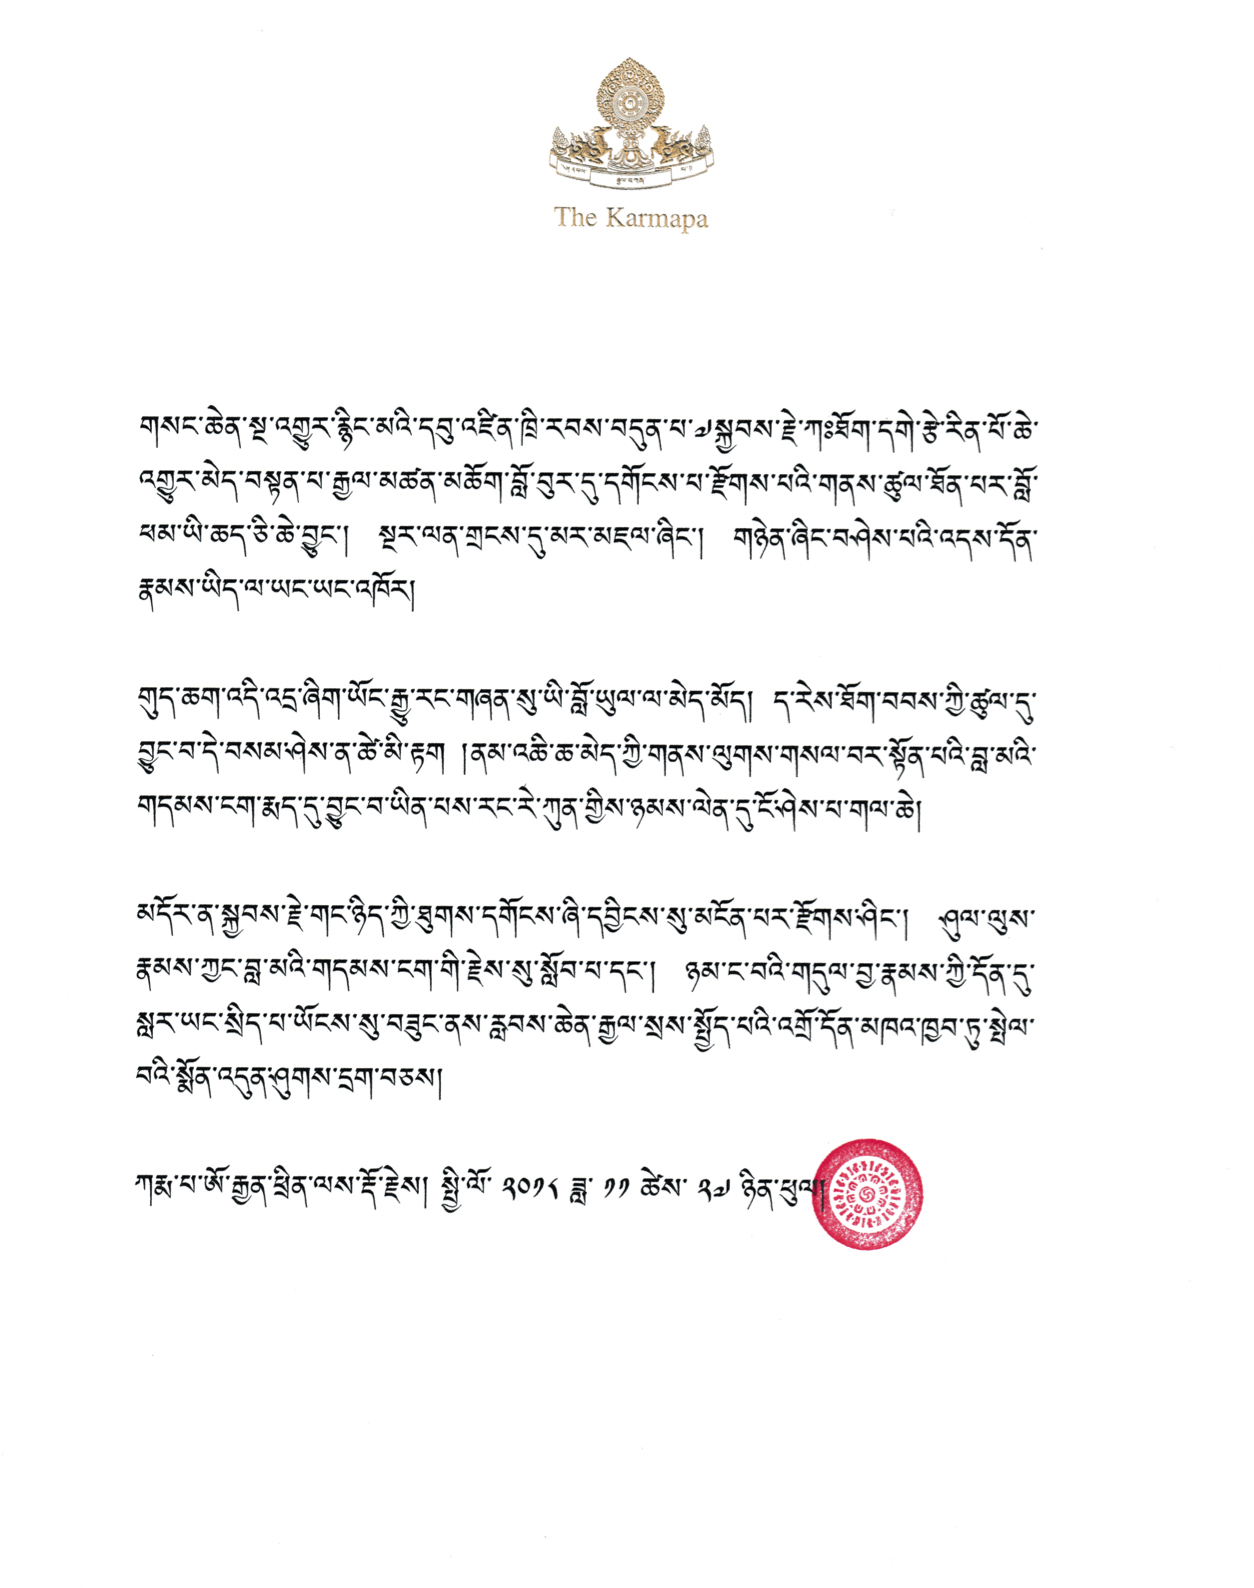 The Karmapa
གསང་ཆེན་སྔ་འགྱུར་རྙིང་མའི་དབུ་འཛིན་ཁྲི་རབས་བདུན་པ་༧སྐྱབས་རྗེ་ཀཿཐོག་དགེ་རྩེ་རིན་པོ་ཆེ་
འགྱུར་མེད་བསྟན་པ་རྒྱལ་མཚན་མཆོག་བློ་བུར་དུ་དགོངས་པ་རྫོགས་པའི་གནས་ཚུལ་ཐོན་པར་བློ་
ཕམ་ཡི་ཆད་ཅི་ཆེ་བྱུང་། སྔར་ལན་གྲངས་དུ་མར་མཇལ་ཞིང་། གཉེན་ཞིང་བཤེས་པའི་འདས་དོན་
རྣམས་ཡིད་ལ་ཡང་ཡང་འཁོར།
གུད་ཆག་འདི་འདྲ་ཞིག་ཡོང་རྒྱུ་རང་གཞན་སུ་ཡི་བློ་ཡུལ་ལ་མེད་མོད། ད་རེས་ཐོག་བབས་ཀྱི་ཚུལ་དུ་
བྱུང་བ་དེ་བསམ་ཤེས་ན་ཚེ་མི་རྟག །ནམ་འཆི་ཆ་མེད་ཀྱི་གནས་ལུགས་གསལ་བར་སྟོན་པའི་བླ་མའི་
གདམས་ངག་རྨད་དུ་བྱུང་བ་ཡིན་པས་རང་རེ་ཀུན་གྱིས་ཉམས་ལེན་དུ་ངོ་ཤེས་པ་གལ་ཆེ།
མདོར་ན་སྐྱབས་རྗེ་གང་ཉིད་ཀྱི་ཐུགས་དགོངས་ཞི་དབྱིངས་སུ་མངོན་པར་རྫོགས་ཤིང་། ཤུལ་ལུས་
རྣམས་ཀྱང་བླ་མའི་གདམས་ངག་གི་རྗེས་སུ་སློབ་པ་དང་། ཉམ་ང་བའི་གདུལ་བྱ་རྣམས་ཀྱི་དོན་དུ་
སླར་ཡང་སྲིད་པ་ཡོངས་སུ་བཟུང་ནས་རླབས་ཆེན་རྒྱལ་སྲས་སྤྱོད་པའི་འགྲོ་དོན་མཁའ་ཁྱབ་ཏུ་སྤེལ་
བའི་སྨོན་འདུན་ཤུགས་དྲག་བཅས།
ཀརྨ་པ་ཨོ་རྒྱན་ཕྲིན་ལས་རྡོ་རྗེས། སྤྱི་ལོ་ ༢༠༡༨ ཟླ་ ༡༡ ཚེས་ ༢༧ ཉིན་ཕུལ།